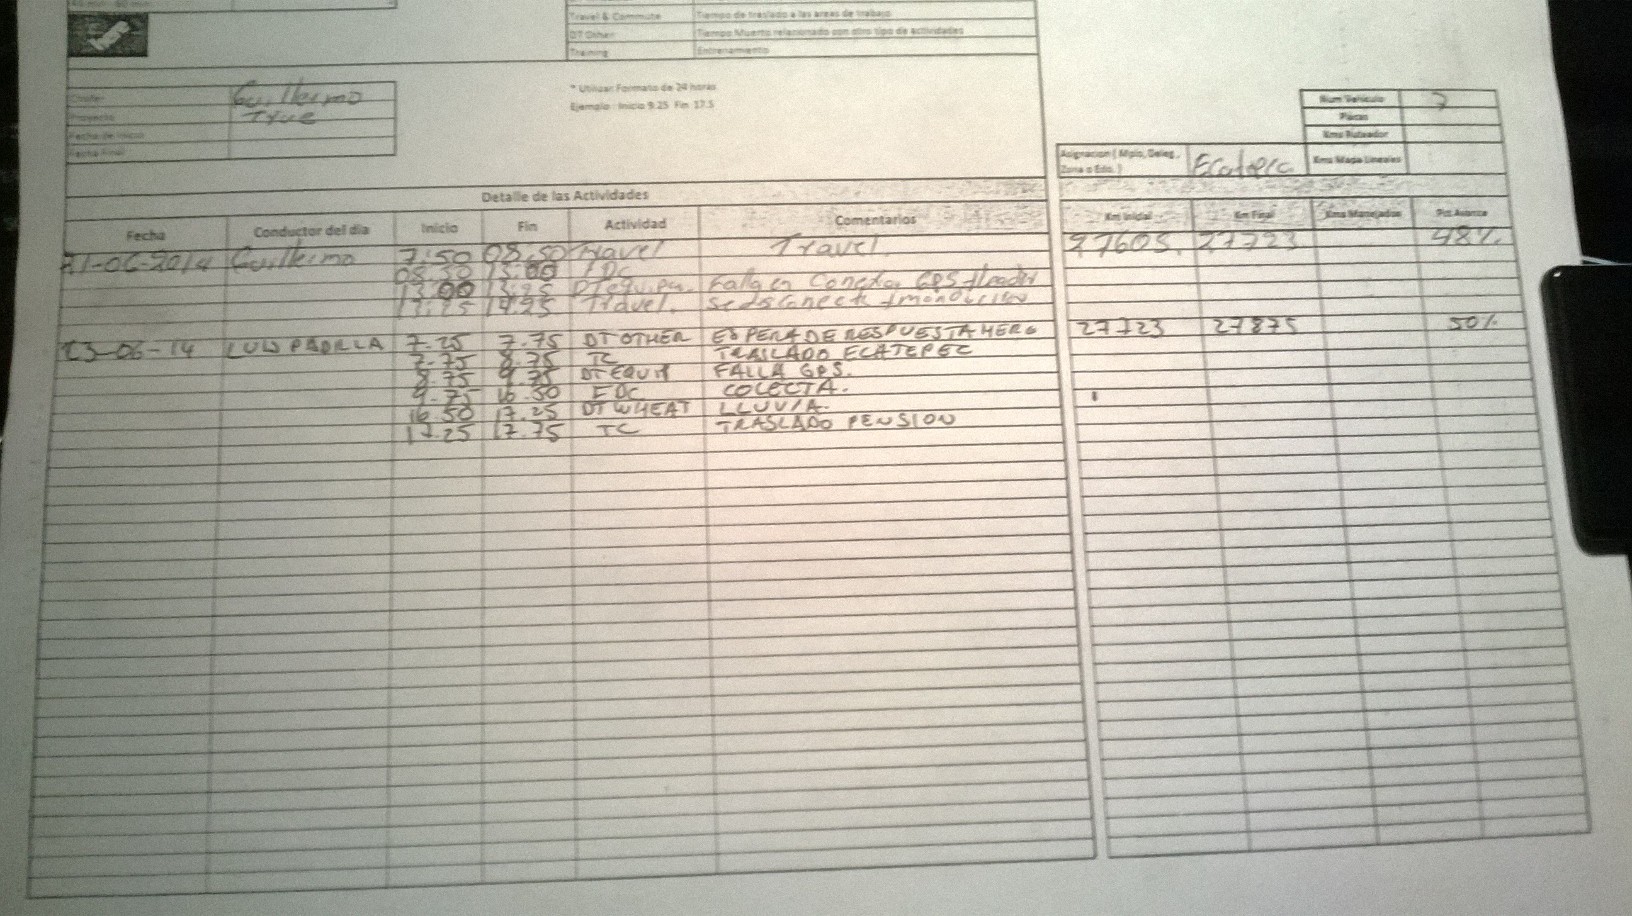 Travel & Commute Tiempo de traslado a las areas de trabajo
DT Other Tiempo Muerto relacionado con otro tipo de actividades
Training Entrenamiento
* Utilizar Formato de 24 horas
Ejemplo : Inicio 9.25 Fin 17.5
Guillermo
Proyecto True
Fecha de Inicio
Fecha Final
Num Vehiculo 7
Kms Ruteador
Asignacion ( Mpio, Deleg, Zona o Edo. ) Ecatepec Kms Mapa Lineales
Detalle de las Actividades
Fecha Conductor del dia Inicio Fin Actividad Comentarios Km Inicial Km Final Kms Manejados Pct Avance
21-06-2014 Guillermo 7.50 08.50 Travel Travel. 27605. 27723 48%
08.50 13.00 FDC
13.00 13.25 Falla en GPS
13.25 14.25 Travel.
23-06-14 LUIS PADILLA 7.25 7.75 DT OTHER ESPERA DE RESPUESTA HERE 27723 27875 50%
7.75 8.75 TC TRASLADO ECATEPEC
8.75 9.75 DT EQUIP FALLA GPS.
9.75 16.50 FDC COLECTA.
16.50 17.25 DT WHEAT LLUVIA.
17.25 17.75 TC TRASLADO PENSION